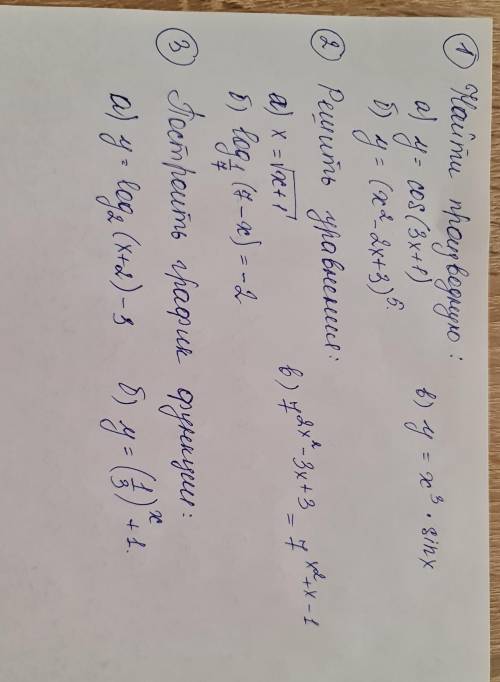 1 Найти производную:
а) y = cos(3x+1)
б) y = (x² - 2x + 3)⁵.
в) y = x³ · sinx
2 Решить уравнения:
а) x = √(x+1)
б) log_{1/7} (7-x) = -2
в) 7^{2x² - 3x + 3} = 7^{x² + x - 1}
3 Построить график функции:
а) y = log₂(x+2) - 3
б) y = (1/3)^x + 1.